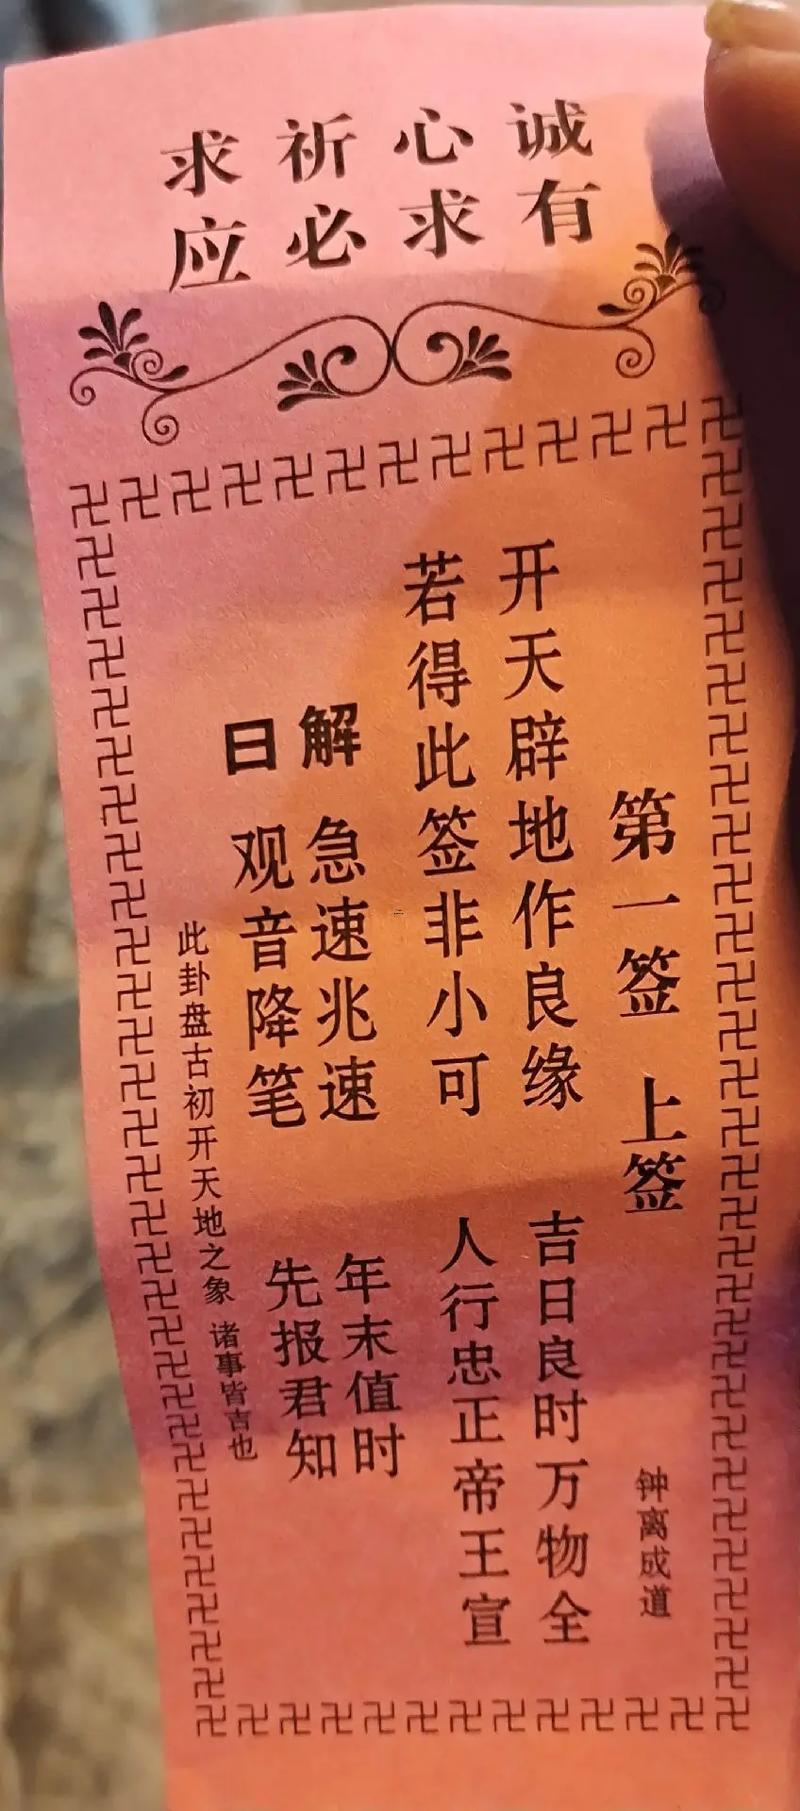 诚心祈求
有求必应
第一签 上签 钟离成道
开天辟地作良缘 吉日良时万物全
若得此签非小可 人行忠正帝王宣
解 急速兆速 年末值时
曰 观音降笔 先报君知
此卦盘古初开天地之象 诸事皆吉也